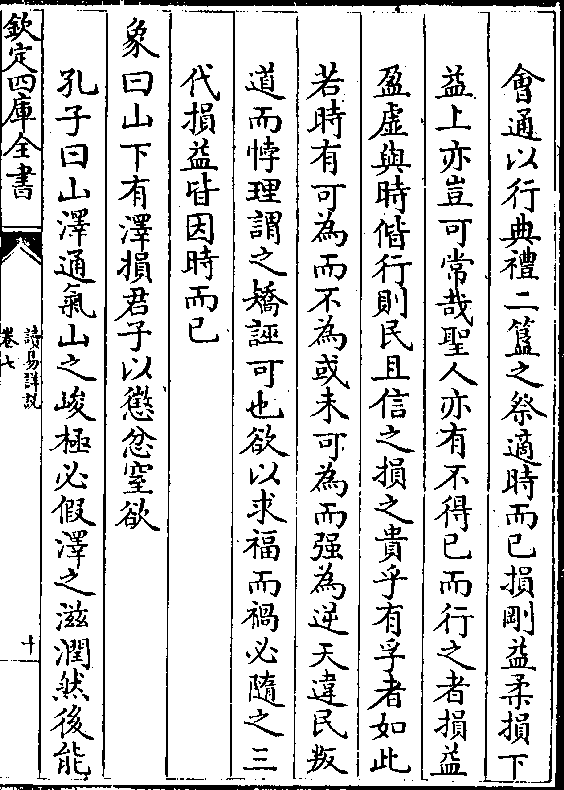 會通以行典禮二簋之祭適時而已損剛益柔損下
益上亦豈可常哉聖人亦有不得已而行之者損益
盈虛與時偕行則民且信之損之貴乎有孚者如此
若時有可為而不為或未可為而强為逆天違民叛
道而悖理謂之矯誣可也欲以求福而禍必隨之三
代損益皆因時而已
象曰山下有澤損君子以懲忿窒欲
孔子曰山澤通氣山之峻極必假澤之滋潤然後能
欽定四庫全書
讀易詳說
卷七
十